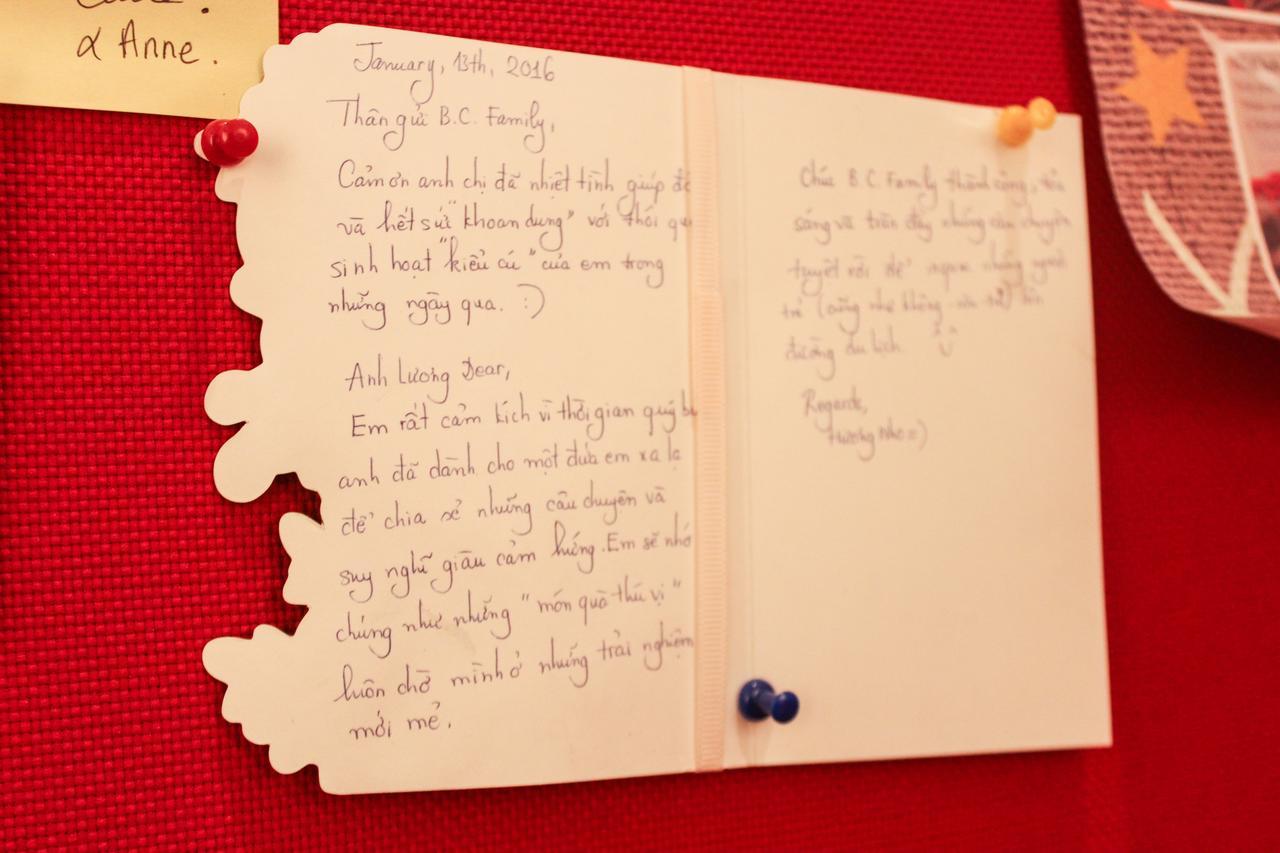 & Anne.
January, 13th, 2016
Thân gửi B.C. Family,
Cảm ơn anh chị đã nhiệt tình giúp đỡ
và hết sức "khoan dung" với thói qu
sinh hoạt "kiểu cú" của em trong
những ngày qua. :)
Anh Lương Dear,
Em rất cảm kích vì thời gian quý bá
anh đã dành cho một đứa em xa lạ
để chia sẻ những câu chuyện và
suy nghĩ giàu cảm hứng. Em sẽ nhớ
chúng như những "món quà thú vị"
luôn chờ mình ở những trải nghiệm
mới mẻ.
Chúc B.C. Family thành công, tỏa
sáng và tràn đầy những câu chuyện
tuyệt vời để những người
trẻ (cũng như không còn trẻ) lên
đường du lịch.
Regards,